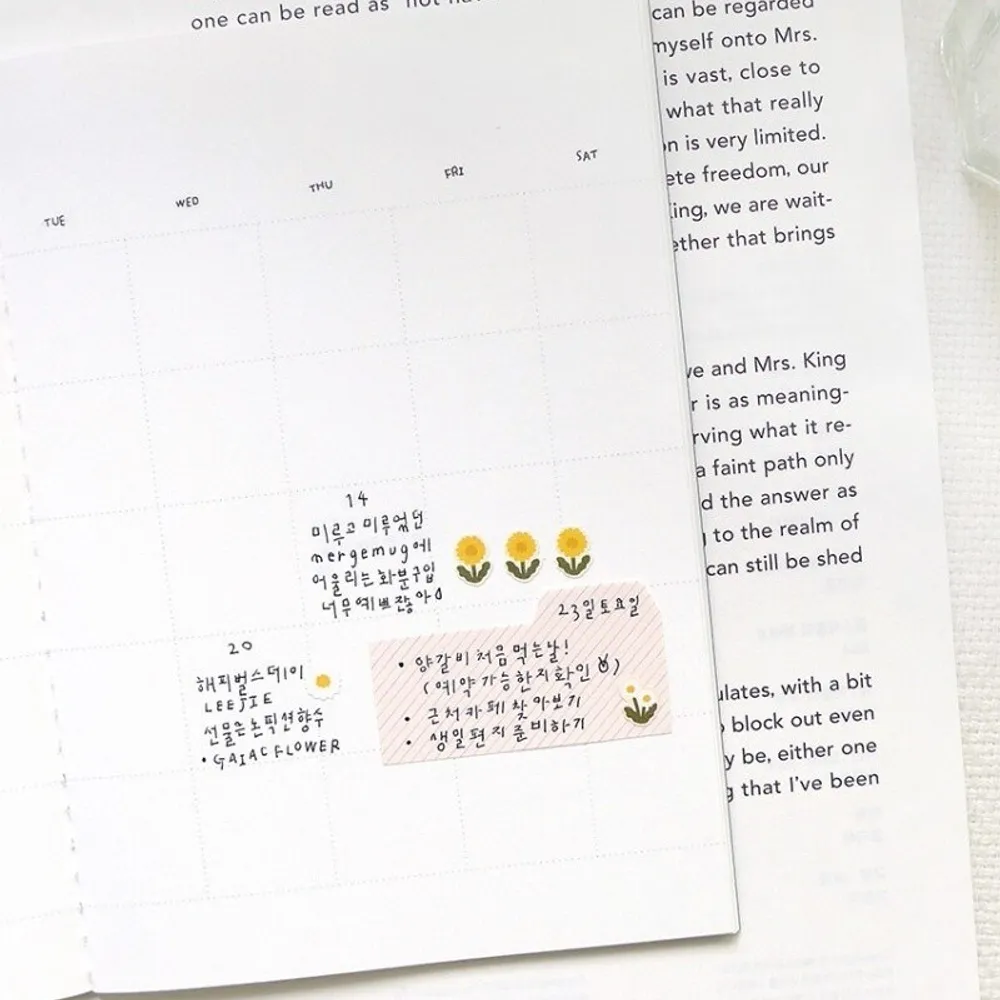 one can be read as
can be regarded
myself onto Mrs.
is vast, close to
what that really
n is very limited.
ete freedom, our
ing, we are wait-
ether that brings
TUE WED THU FRI SAT
ve and Mrs. King
r is as meaning-
rving what it re-
a faint path only
d the answer as
to the realm of
can still be shed
14
미루고 미루었던
mergemug에
어울리는 화분구입
너무예쁘잖아
23일토요일
• 양갈비 처음 먹는날!
(예약가능한지확인)
• 근처카페찾아보기
• 생일편지준비하기
20
해피벌스데이
LEEJIE
선물은논픽션향수
• GAIAC FLOWER
ulates, with a bit
block out even
y be, either one
g that I've been